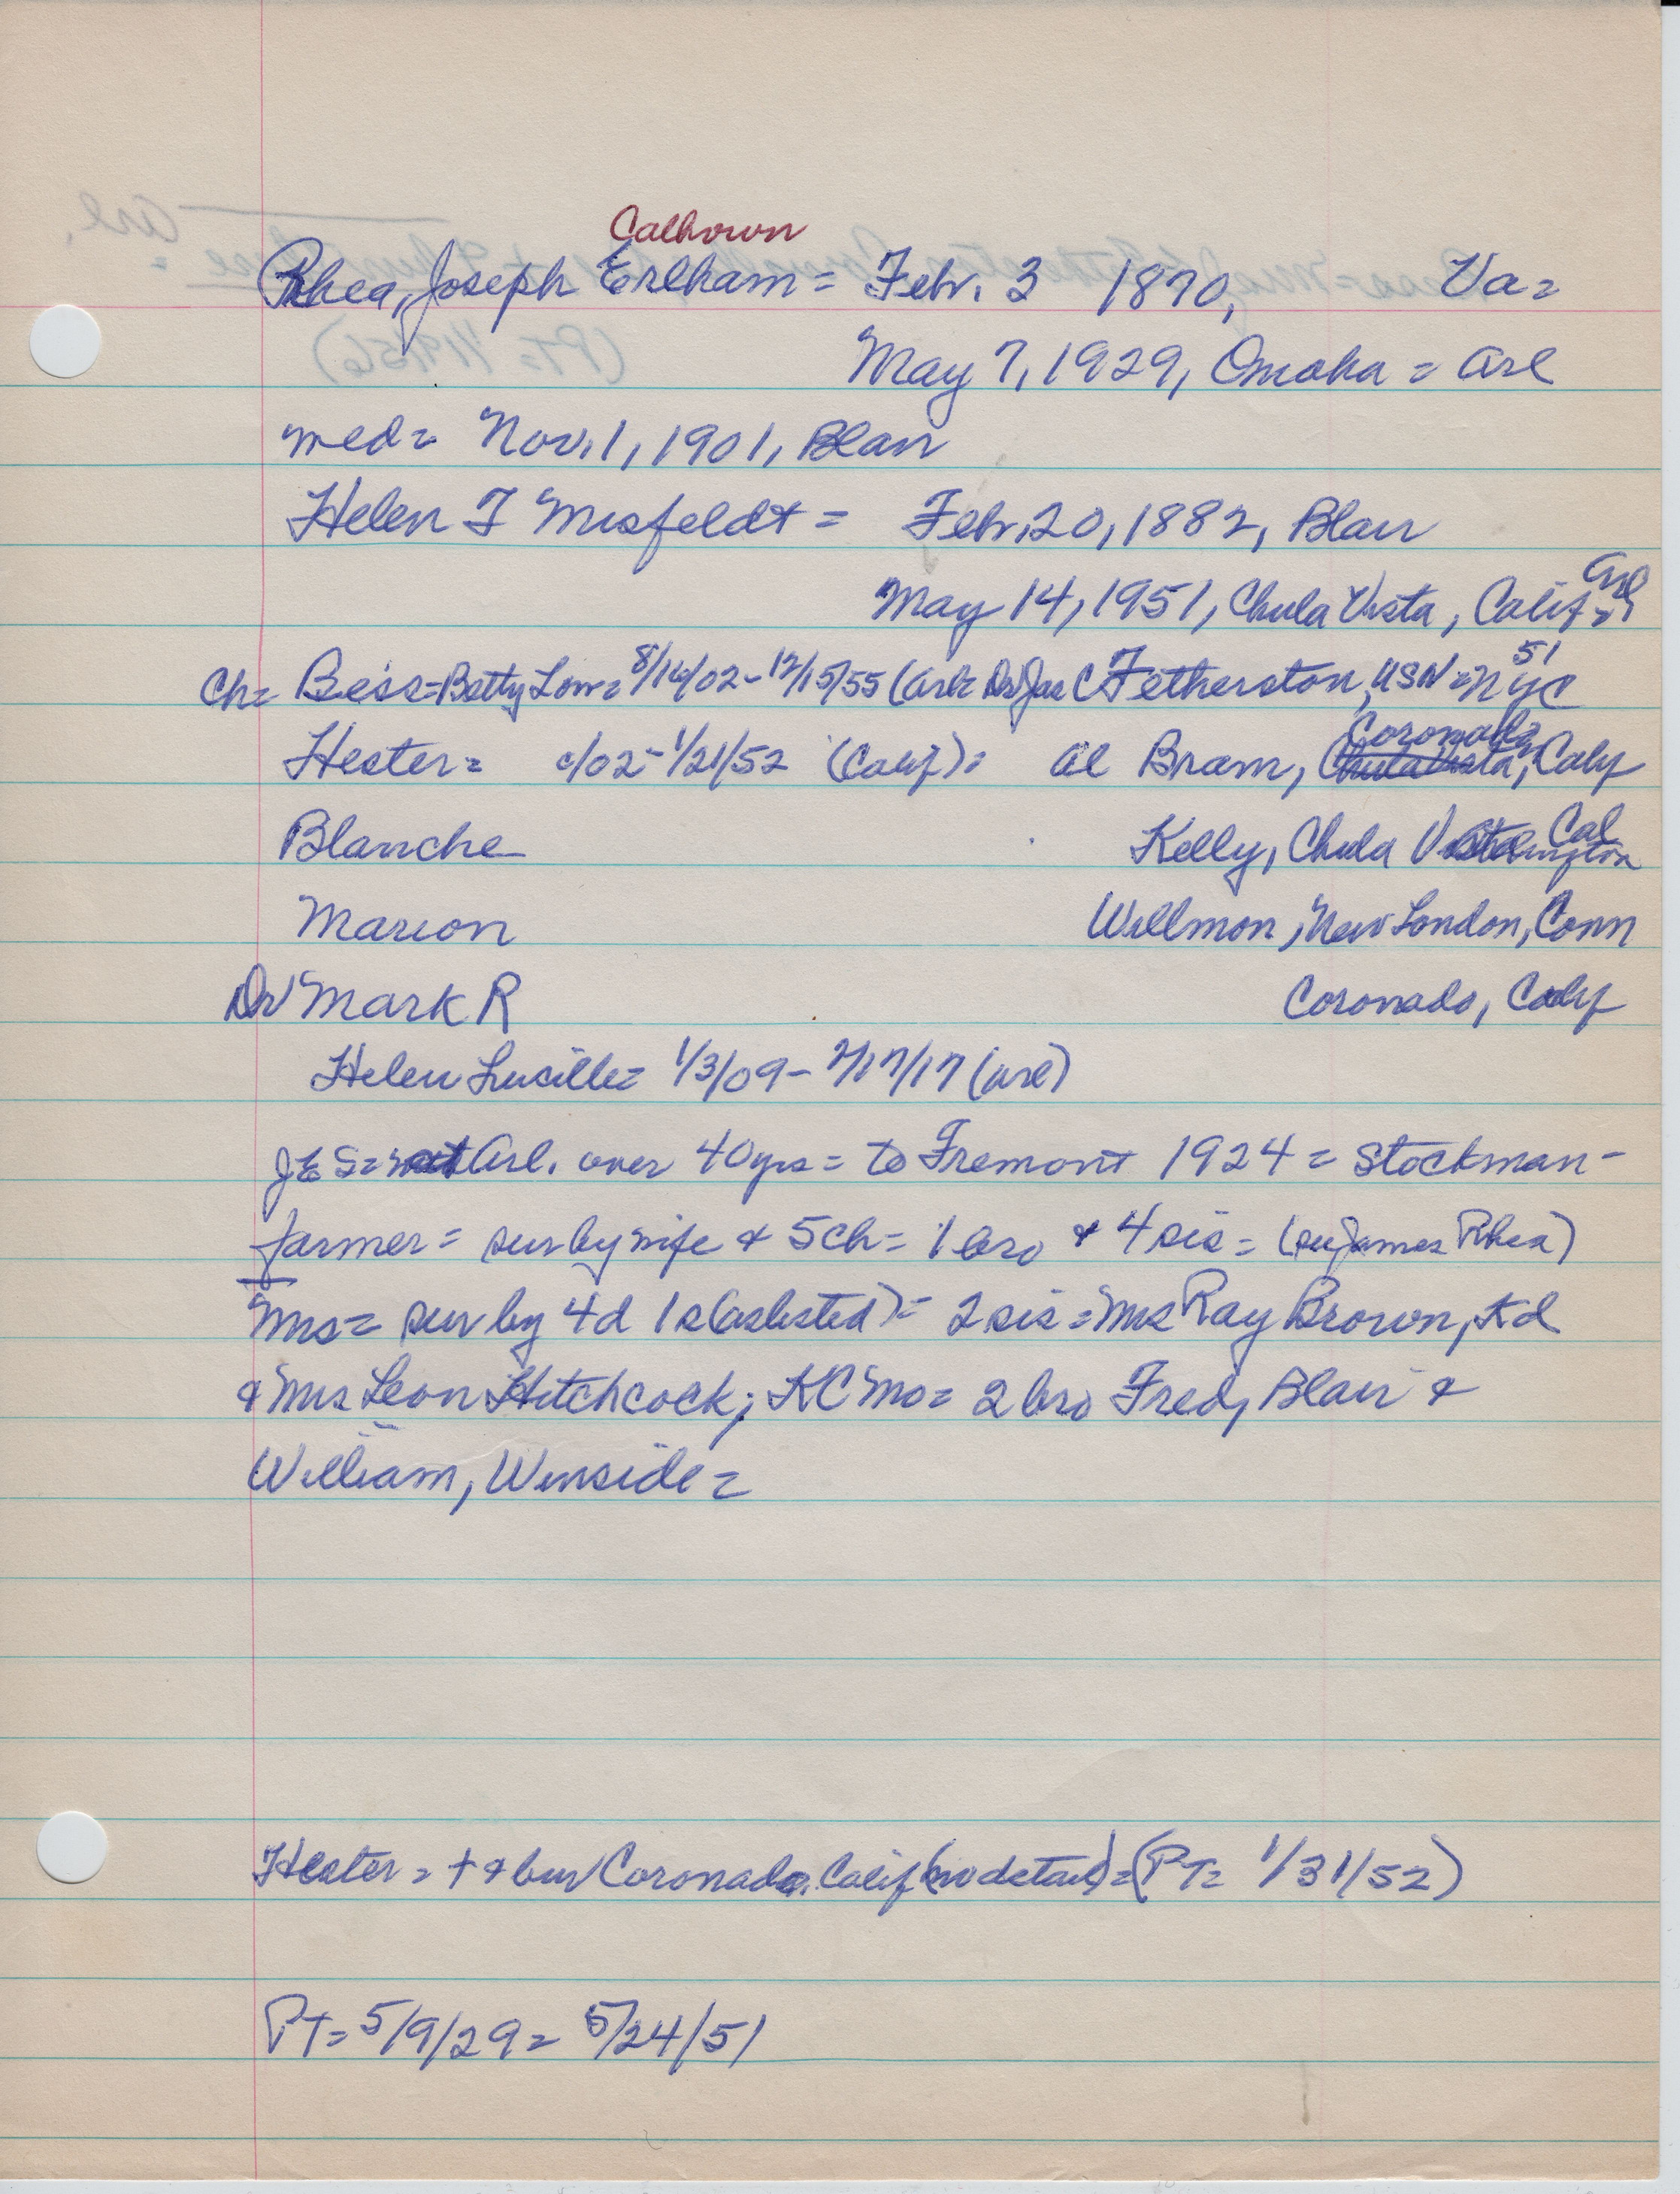 Calhoun
Rhea, Joseph Erlham = Feb. 3 1870, Va =
May 7, 1929, Omaha = Arl
med = Nov. 1, 1901, Blair
Helen F Misfeldt = Feb. 20, 1882, Blair
May 14, 1951, Chula Vista, Calif = Arl
51
Ch = Bess = Betty Lou = 8/14/02 - 12/15/55 (Arl = Dr Jas C Fetherston, USN = NYC
Coronado
Hester = c/02 - 1/21/52 (Calif) = Al Bram, Chula Vista, Calif
Blanche Kelly, Chula Cal
Marion Willmon, New London, Conn
Dr Mark R Coronado, Calif
Helen Lucille = 1/3/09 - 2/17/17 (Arl)
Arl. over 40 yrs = to Fremont 1924 = stockman -
farmer = sur by wife & 5 ch = 1 bro & 4 sis = (su James Rhea)
Mrs = sur by 4 d 1 s (as listed) = 2 sis = Mrs Ray Brown, Kd
& Mrs Leon Hitchcock; KC Mo = 2 bro Fred, Blair &
William, Winside =
Hester = + & bur Coronado, Calif (no detail) = (PT = 1/31/52)
PT = 5/9/29 = 5/24/51